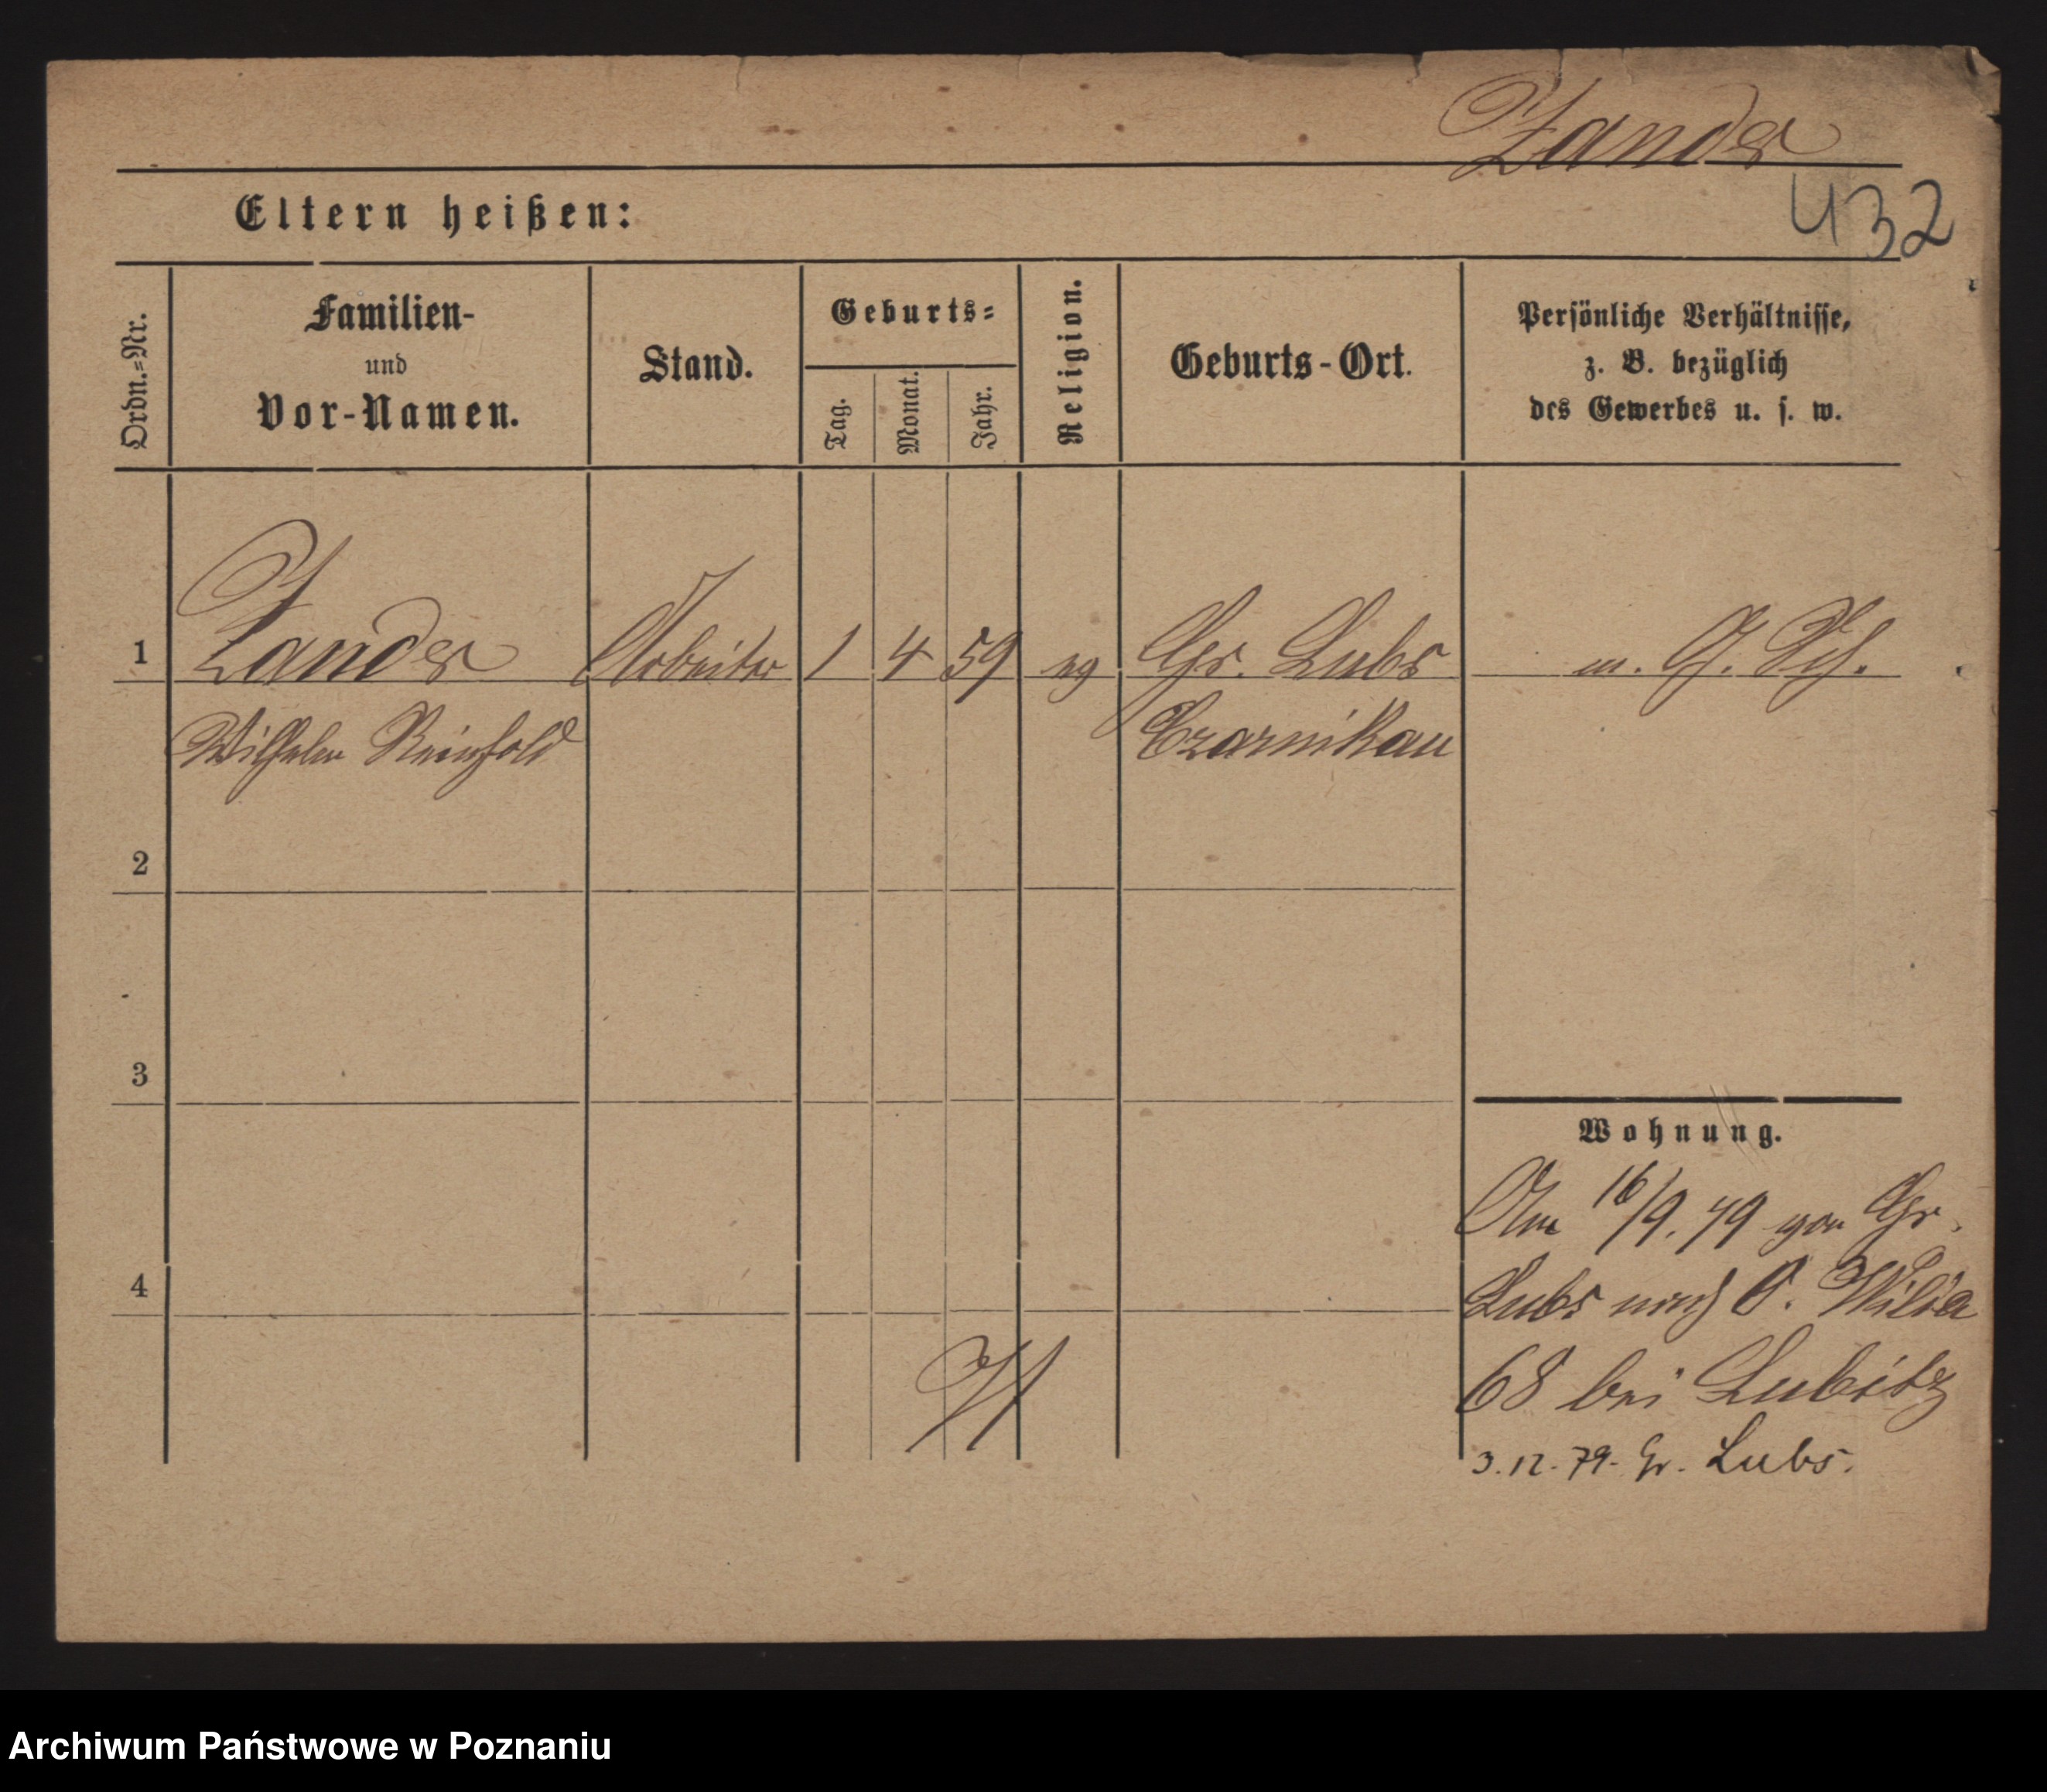 Zander
432
Eltern heißen:
Ordn.=Nr.
Familien-
und
Vor-Namen.
Stand.
Geburts=
Tag.
Monat.
Jahr.
Religion.
Geburts-Ort.
Persönliche Verhältnisse,
z. B. bezüglich
des Gewerbes u. s. w.
1 Zander Arbeiter 1 4 59 ev Gr. Lubs
Wilhelm Reinhold Czarnikau
2
3
Wohnung.
Am 16/9. 79 von Gr.
4
Lubs nach O. Wilda
68 bei Lubitz
3.12.79. Gr. Lubs.
Archiwum Państwowe w Poznaniu